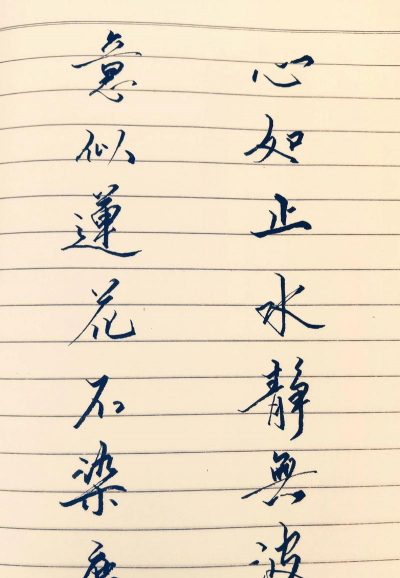 心如止水靜無波
意似蓮花不染